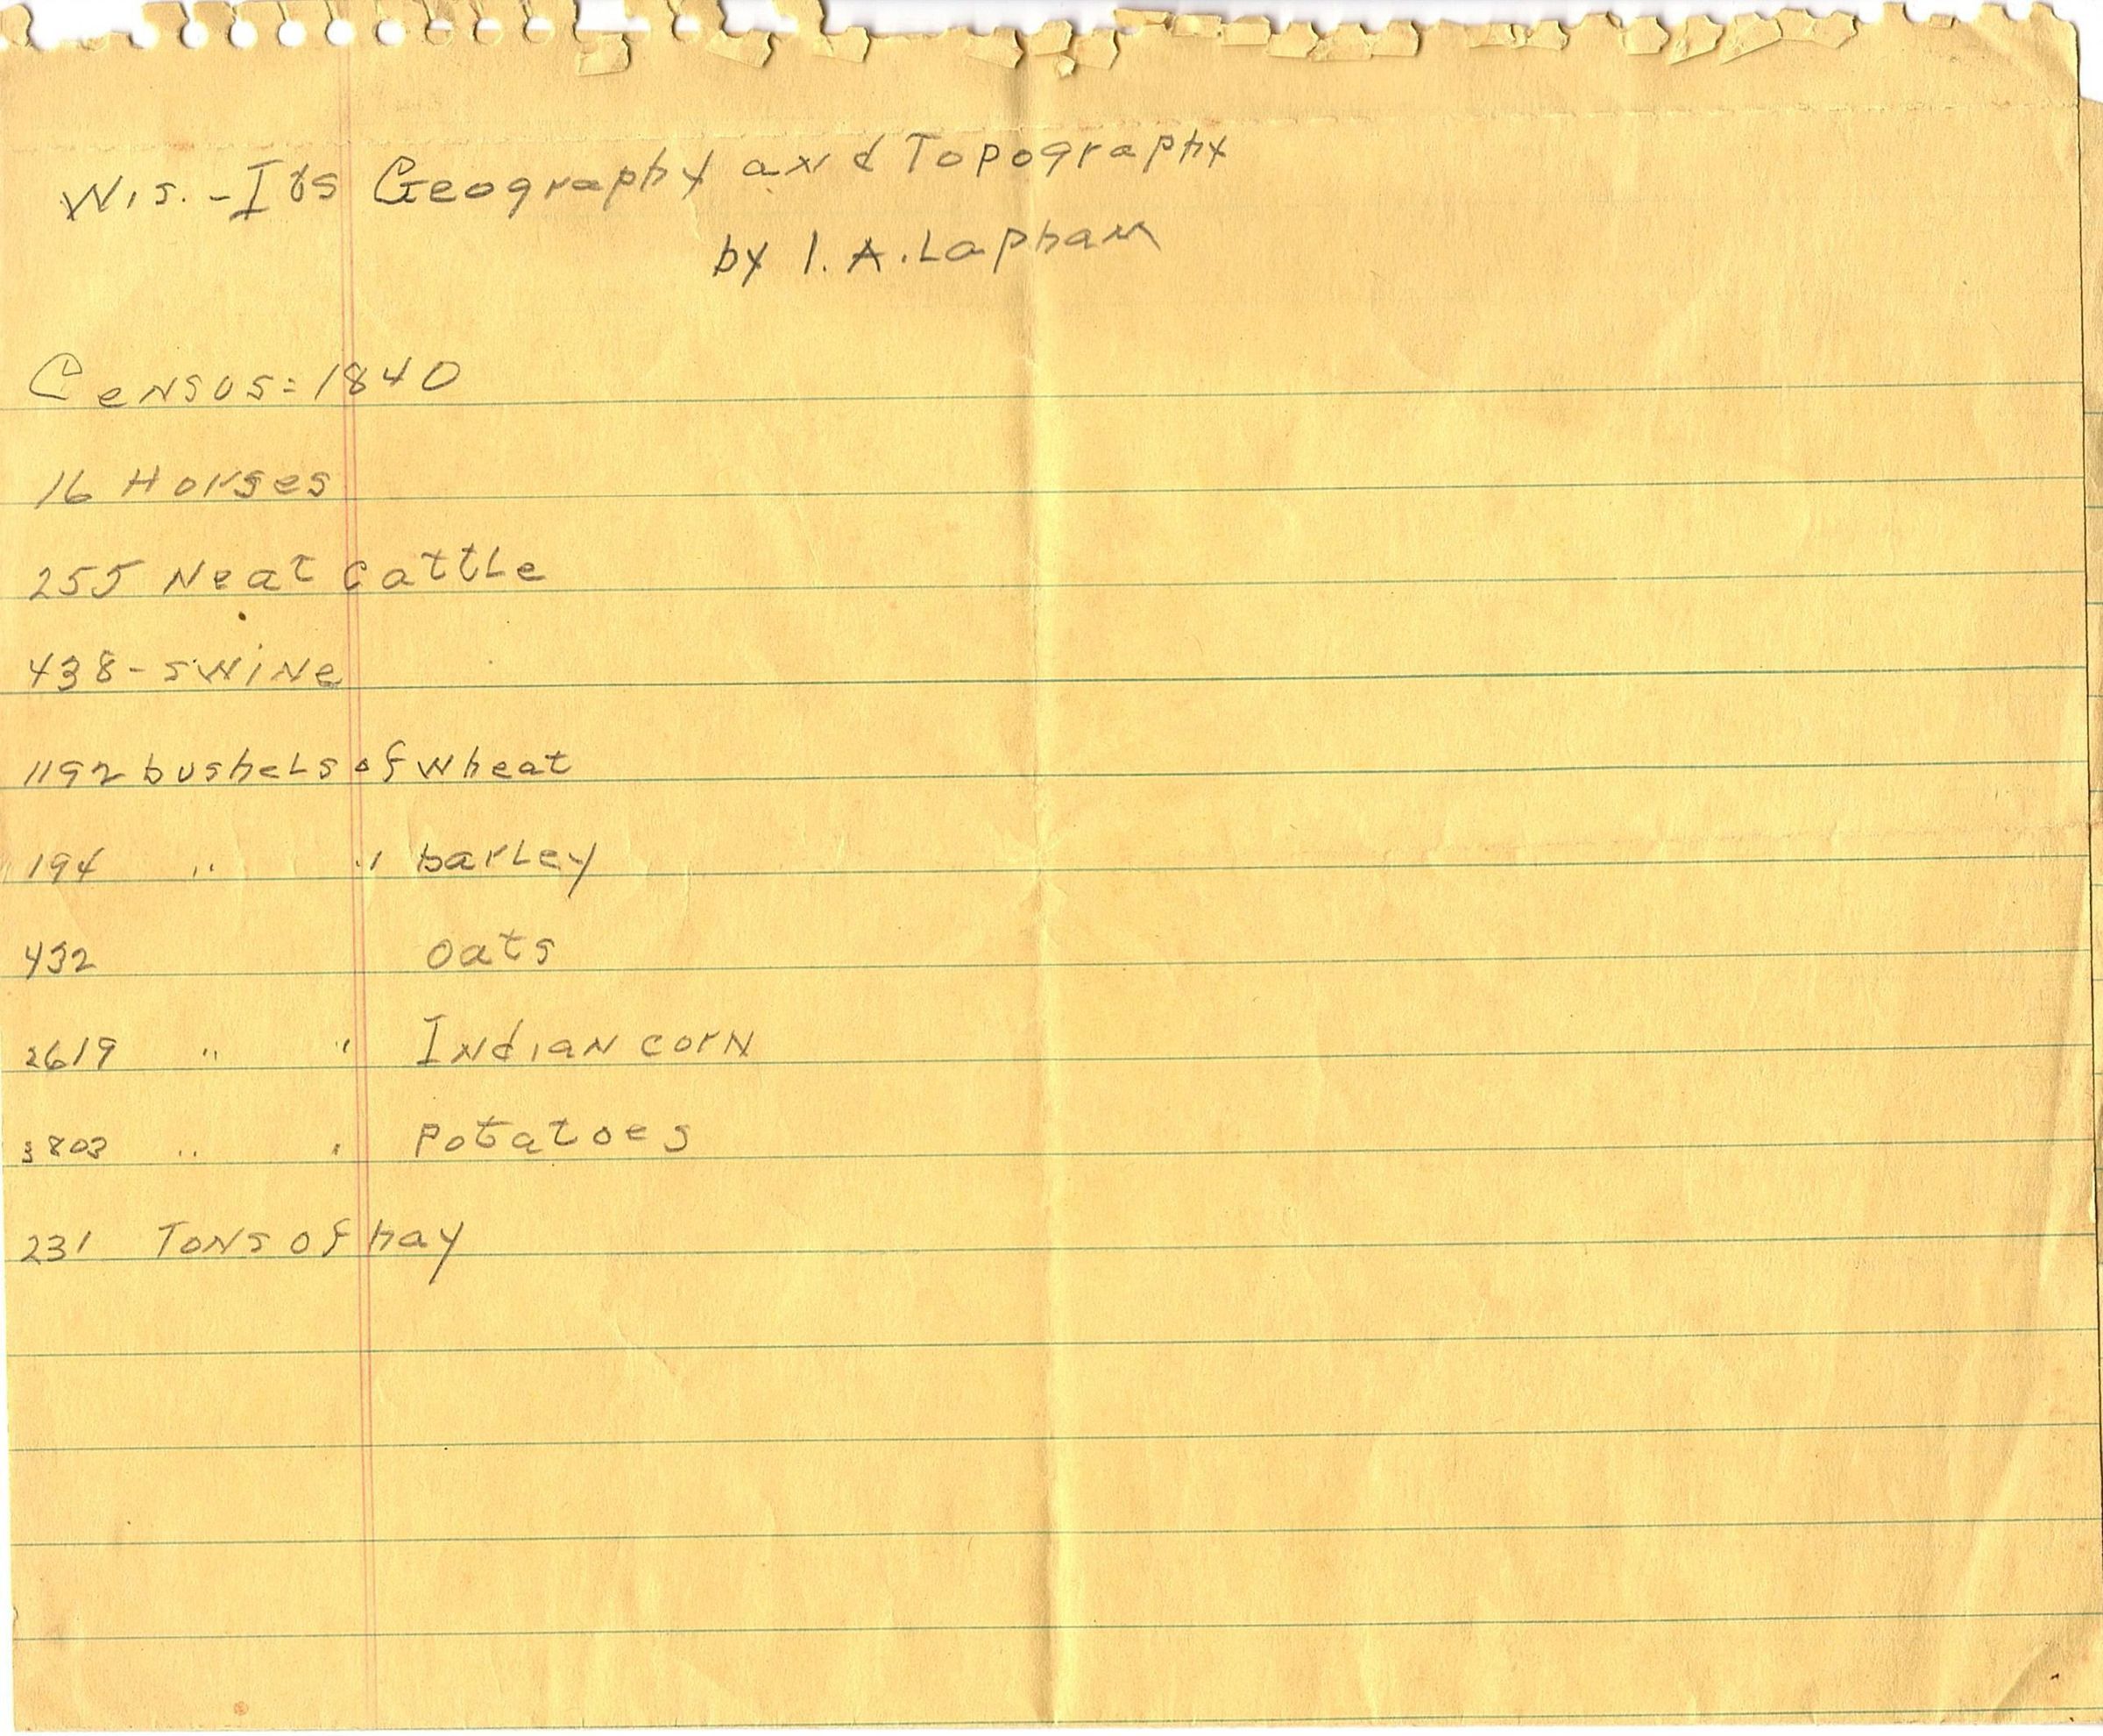 Wis. - Its Geography and Topography
by I. A. Lapham
Census: 1840
16 Horses
255 Neat cattle
438 - swine
1192 bushels of wheat
194 " " barley
432 oats
2619 " " Indian corn
3803 " " Potatoes
231 Tons of hay